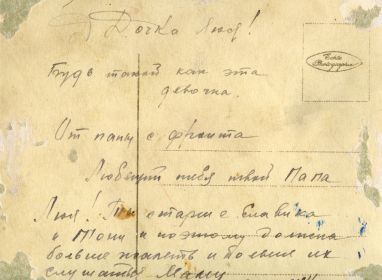 Дочка Люся!
Echte Photographie
Будь такой как эта
девочка.
От папы с фронта
Любящий тебя твой Папа
Люся! Ты старше Славика
и Тони и поэтому должна
больше жалеть и больше их
слушаться Мамы